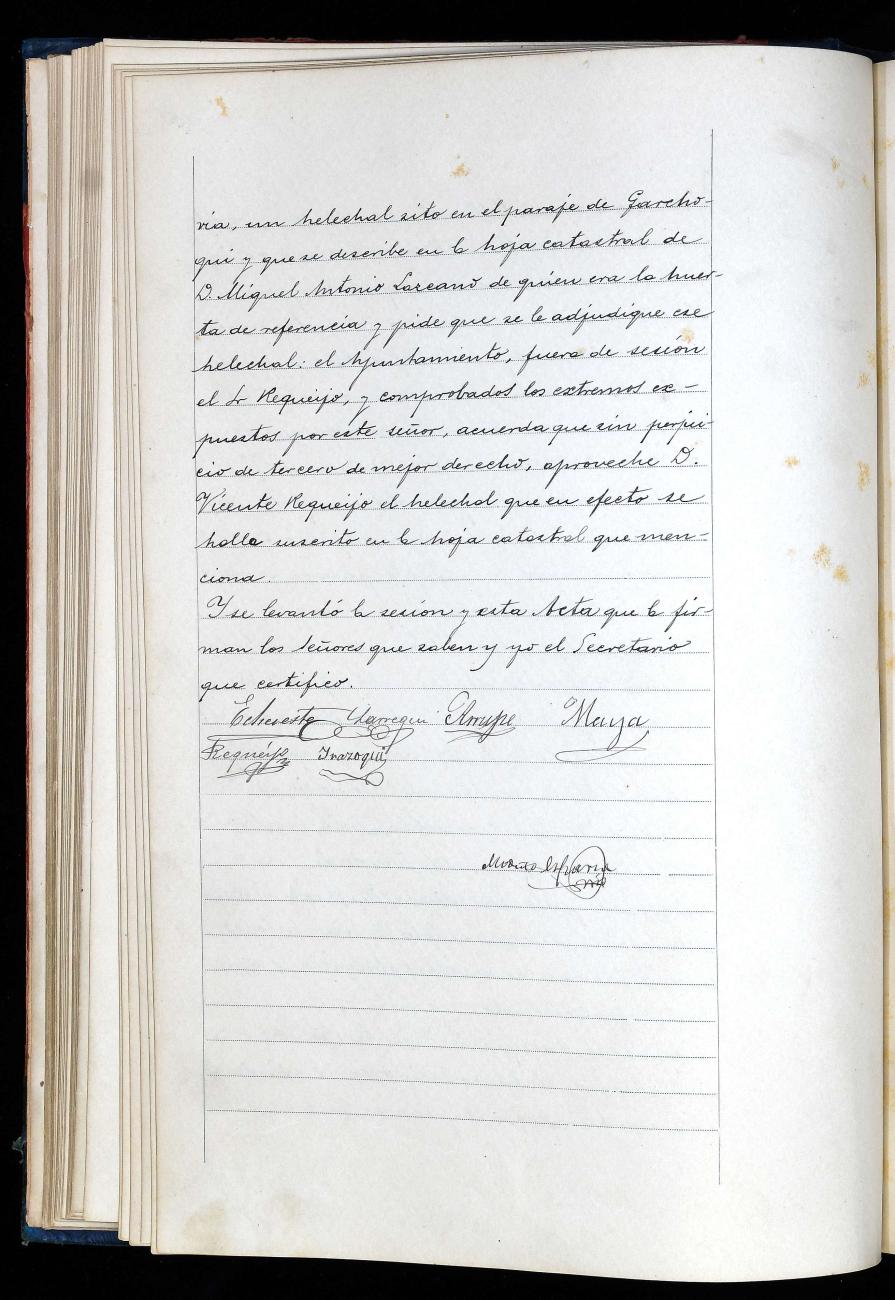 vía, un helechal sito en el paraje de Garcho-
qui y que se describe en la hoja catastral de
D. Miguel Antonio Lazcano de quien era la huer-
ta de referencia y pide que se le adjudique ese
helechal: el Ayuntamiento, fuera de sesión
el Sr Requeijo, y comprobados los extremos ex-
puestos por este señor, acuerda que sin perjui-
cio de tercero de mejor derecho, aproveche D.
Vicente Requeijo el helechal que en efecto se
halla suscrito en la hoja catastral que men-
ciona.
Y se levantó la sesión y esta Acta que la fir-
man los Señores que saben y yo el Secretario
que certifico.
Echeveste Ylarregui Arrupe Maya
Requeijo Irazoqui